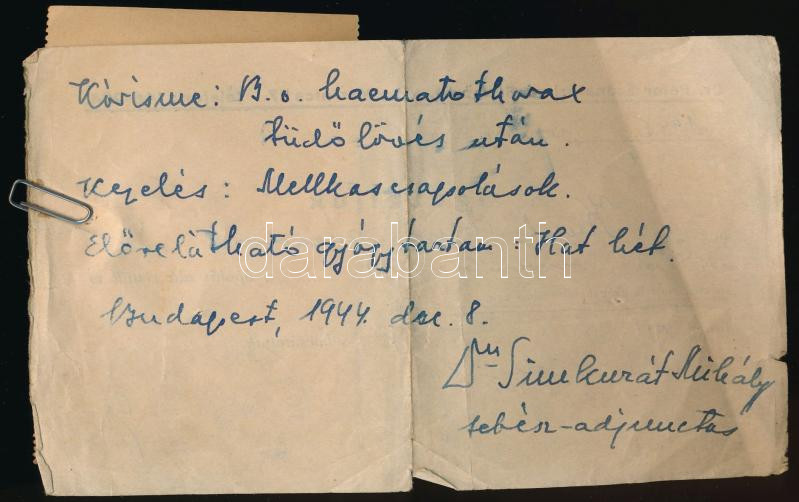 Kórisme: B. o. haematothorax
tüdőlövés után.
Kezelés: Mellkascsapolások.
Előrelátható gyógytartam: Hat hét.
darabanth
Budapest, 1944. dec. 8.
Dr Simkurát Mihály
sebész-adjunctus